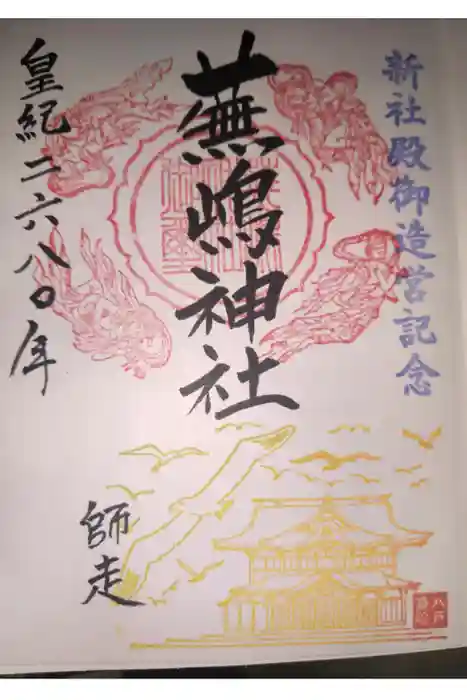 新社殿御造営記念
蕪嶋神社
皇紀二六八〇年
師走